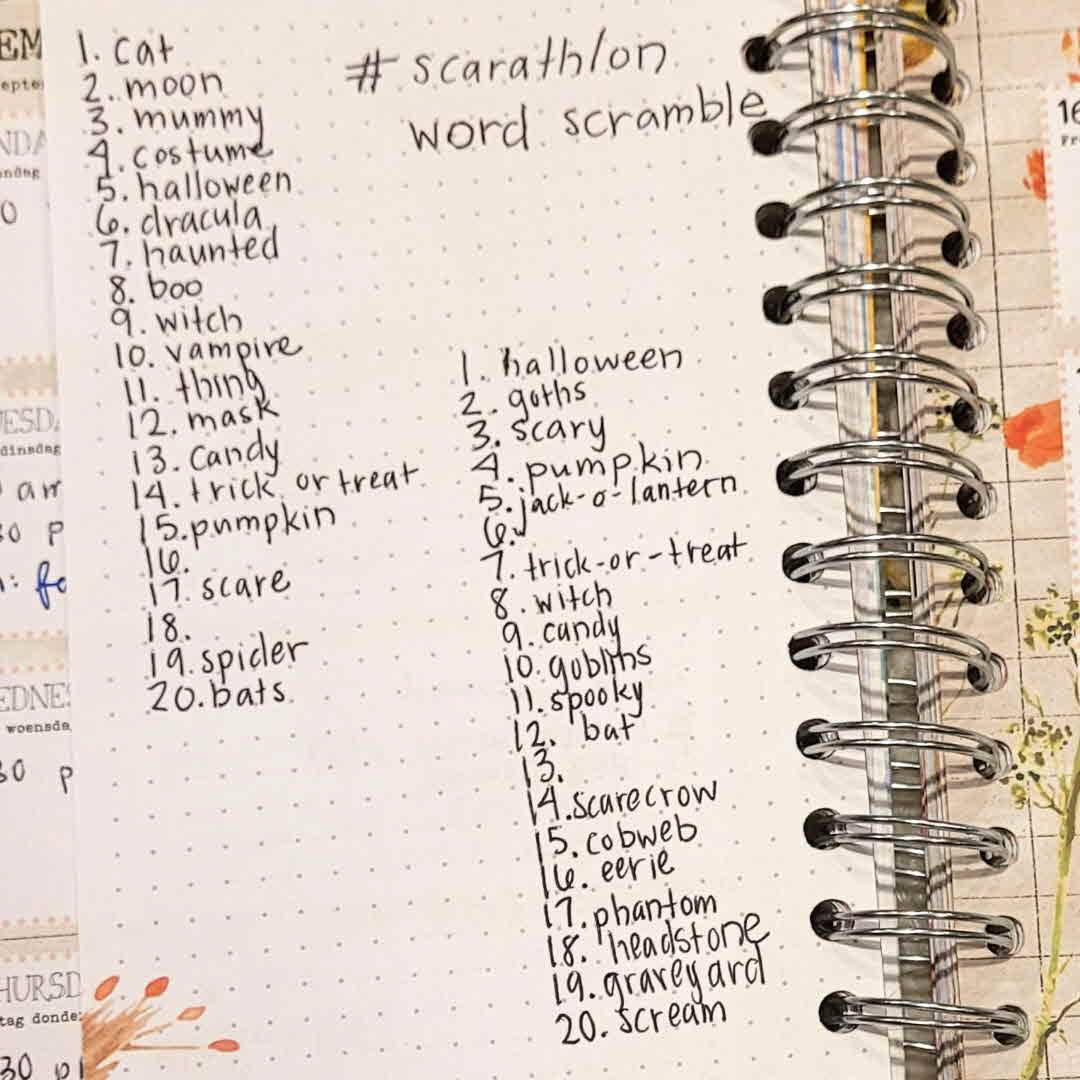 # scarathlon
word scramble
1. cat
2. moon
3. mummy
4. costume
5. halloween
6. dracula
7. haunted
8. boo
9. witch
10. vampire
11. thing
12. mask
13. candy
14. trick or treat
15. pumpkin
16.
17. scare
18.
19. spider
20. bats
1. halloween
2. goths
3. scary
4. pumpkin
5. jack-o-lantern
6.
7. trick-or-treat
8. witch
9. candy
10. goblins
11. spooky
12. bat
13.
14. scarecrow
15. cobweb
16. eerie
17. phantom
18. headstone
19. graveyard
20. scream
EM
epte
NDA
0
ESDA
dinsdag
am
30 P
EDNES
woensda
30 p
HURSD
tag donde
30 pl
16
Fr